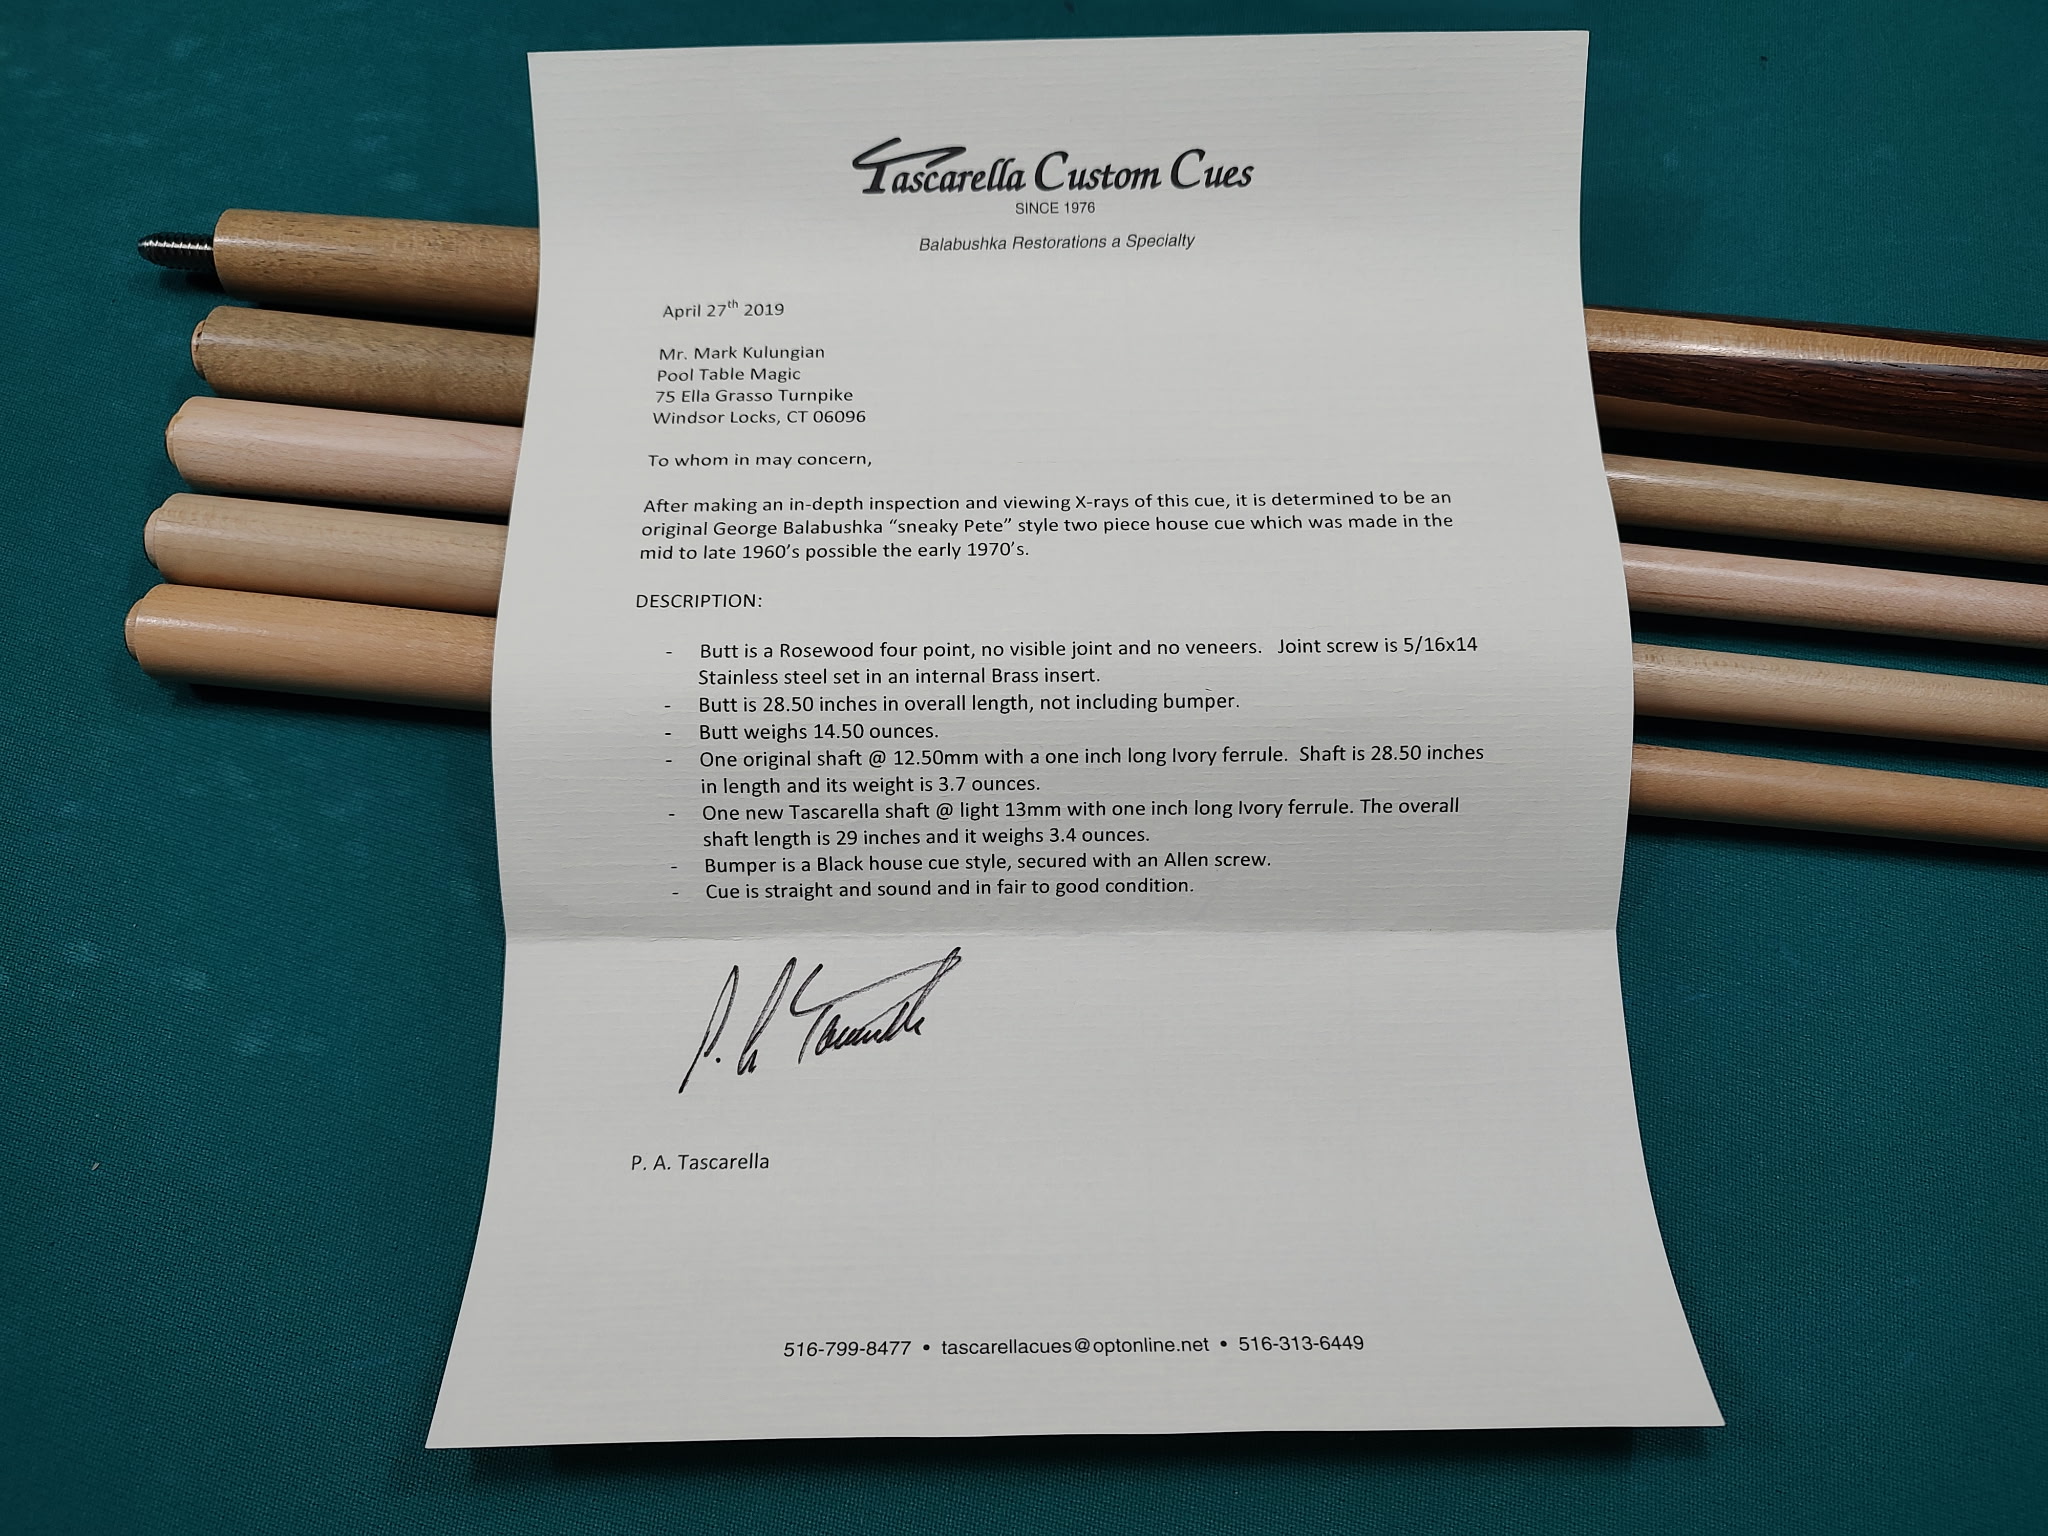 Tascarella Custom Cues
SINCE 1976
Balabushka Restorations a Specialty
April 27th 2019
Mr. Mark Kulungian
Pool Table Magic
75 Ella Grasso Turnpike
Windsor Locks, CT 06096
To whom in may concern,
After making an in-depth inspection and viewing X-rays of this cue, it is determined to be an
original George Balabushka “sneaky Pete” style two piece house cue which was made in the
mid to late 1960’s possible the early 1970’s.
DESCRIPTION:
- Butt is a Rosewood four point, no visible joint and no veneers. Joint screw is 5/16x14
Stainless steel set in an internal Brass insert.
- Butt is 28.50 inches in overall length, not including bumper.
- Butt weighs 14.50 ounces.
- One original shaft @ 12.50mm with a one inch long Ivory ferrule. Shaft is 28.50 inches
in length and its weight is 3.7 ounces.
- One new Tascarella shaft @ light 13mm with one inch long Ivory ferrule. The overall
shaft length is 29 inches and it weighs 3.4 ounces.
- Bumper is a Black house cue style, secured with an Allen screw.
- Cue is straight and sound and in fair to good condition.
P. A. Tascarella
P. A. Tascarella
516-799-8477 • tascarellacues@optonline.net • 516-313-6449